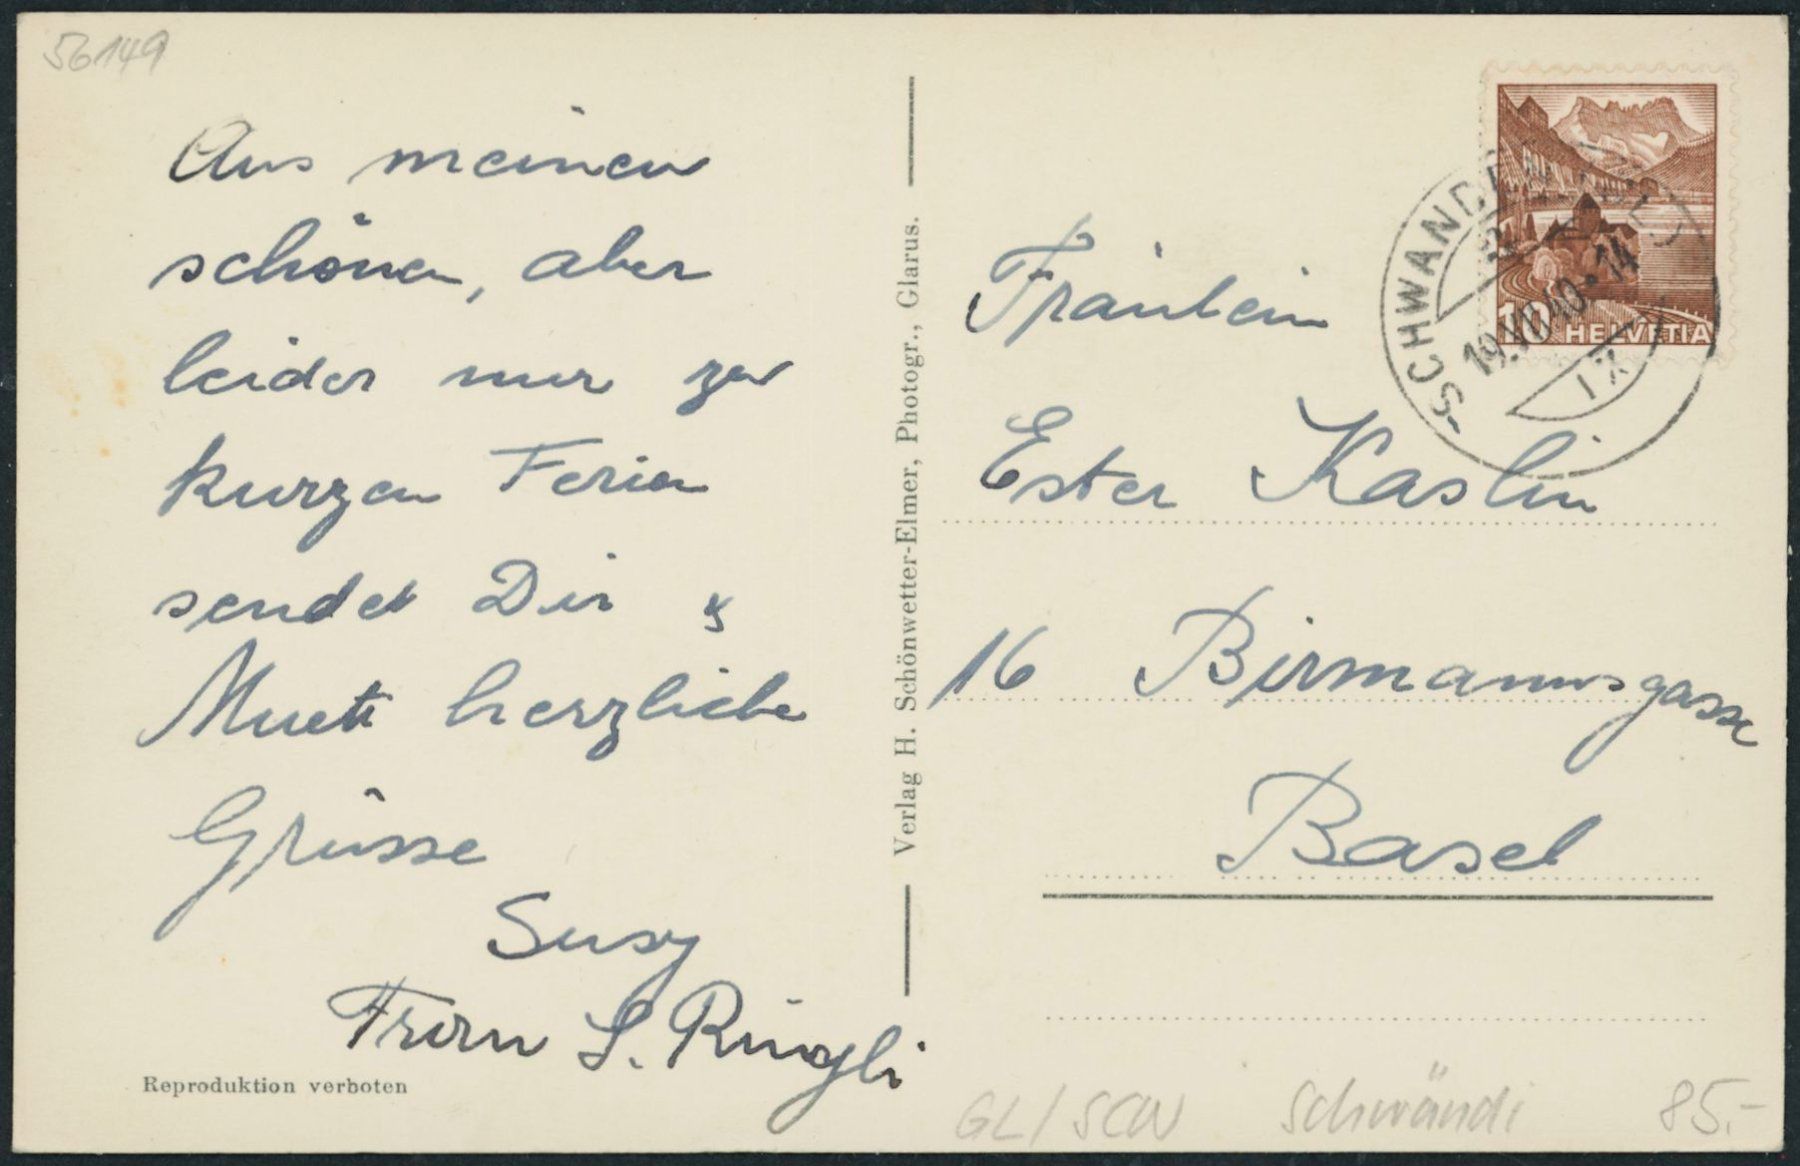 56149
Aus meinen
schönen, aber
leider nur zu
kurzen Ferien
sendet Dir &
Mueti herzliche
Grüsse
Susy
Frau S. Ringli
Reproduktion verboten
Verlag H. Schönwetter-Elmer, Photogr., Glarus.
10 HELVETIA
SCHWANDEN
19.VII.40-14
IX
Fräulein
Ester Käslin
16 Birmannsgasse
Basel
GL/SCW Schwändi 85.-